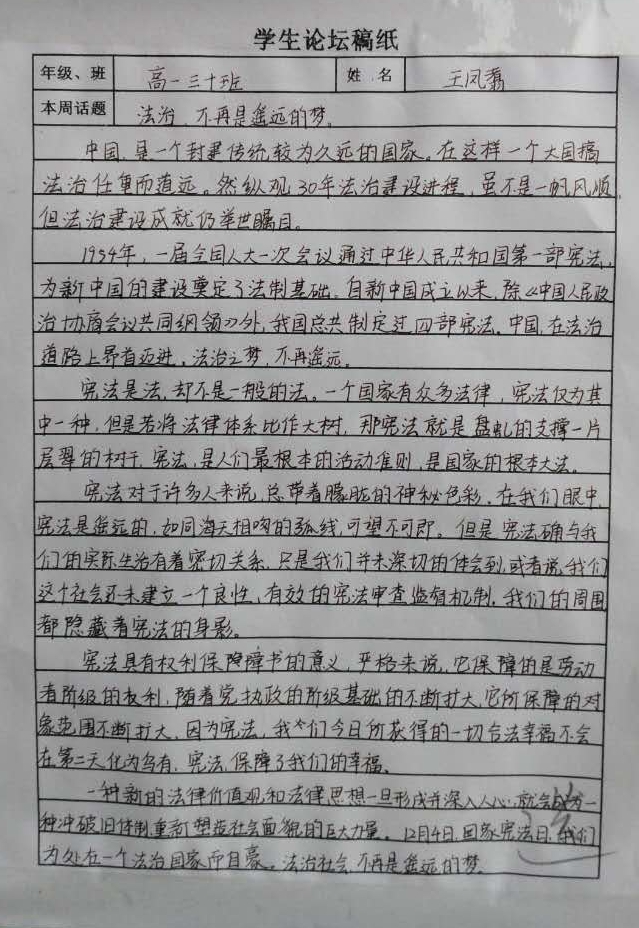 学生论坛稿纸
年级、班 高一三十班 姓 名 王凤翥
本周话题 法治,不再是遥远的梦。
中国,是一个封建传统较为久远的国家。在这样一个大国搞
法治任重而道远。然纵观30年法治建设进程,虽不是一帆风顺,
但法治建设成就仍举世瞩目。
1954年,一届全国人大一次会议通过中华人民共和国第一部宪法,
为新中国的建设奠定了法制基础。自新中国成立以来,除《中国人民政
治协商会议共同纲领》外,我国总共制定过四部宪法。中国,在法治
道路上昂首迈进。法治之梦,不再遥远。
宪法是法,却不是一般的法。一个国家有众多法律,宪法仅为其
中一种,但是若将法律体系比作大树,那宪法就是盘虬的支撑一片
层翠的树干。宪法,是人们最根本的活动准则,是国家的根本大法。
宪法对于许多人来说,总带着朦胧的神秘色彩。在我们眼中,
宪法是遥远的,如同海天相吻的弧线,可望不可即。但是宪法确与我
们的实际生活有着密切关系,只是我们并未深切的体会到,或者说,我们
这个社会还未建立一个良性,有效的宪法审查监督机制。我们的周围
都隐藏着宪法的身影。
宪法具有权利保障书的意义,严格来说,它保障的是劳动
者阶级的权利,随着党执政的阶级基础的不断扩大,它所保障的对
象范围不断扩大。因为宪法,我们今日所获得的一切合法幸福不会
在第二天化为乌有。宪法,保障了我们的幸福。
一种新的法律价值观和法律思想一旦形成并深入人心,就会成为一
种冲破旧体制,重新塑造社会面貌的巨大力量。12月4日,国家宪法日,我们
为处在一个法治国家而自豪。法治社会,不再是遥远的梦。